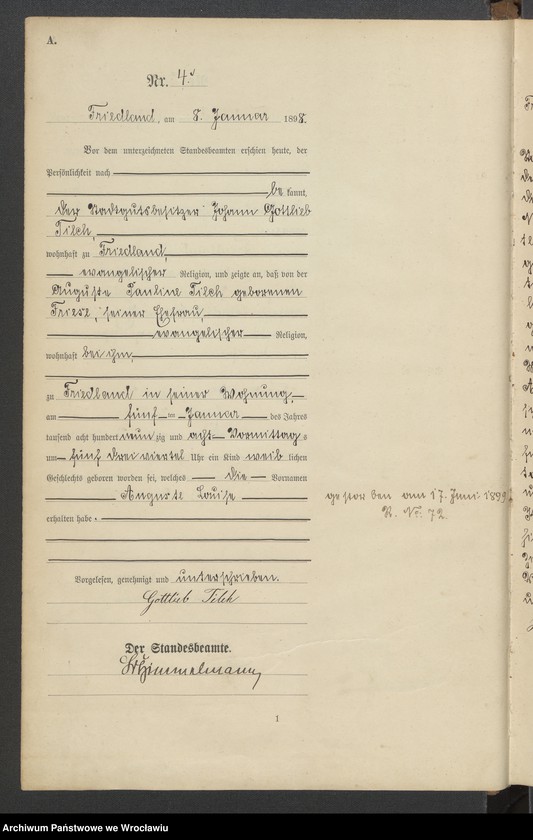 A.
Nr. 4.
Friedland, am 8. Januar 1898.
Vor dem unterzeichneten Standesbeamten erschien heute, der
Persönlichkeit nach
be kannt,
der Stadtgutsbesitzer Johann Gottlieb
Tilch,
wohnhaft zu Friedland,
evangelischer Religion, und zeigte an, daß von der
Auguste Pauline Tilch geborenen
Friese, seiner Ehefrau,
evangelischer Religion,
wohnhaft bei ihm,
zu Friedland in seiner Wohnung,
am fünf ten Januar des Jahres
tausend acht hundert neun zig und acht Vormittag s
um fünf drei viertel Uhr ein Kind weib lichen
Geschlechts geboren worden sei, welches die Vornamen
Auguste Louise
erhalten habe.
gestorben am 17. Juni 1899
R. No. 72.
Vorgelesen, genehmigt und unterschrieben.
Gottlieb Tilch
Der Standesbeamte.
Himmelmann
1
Archiwum Państwowe we Wrocławiu